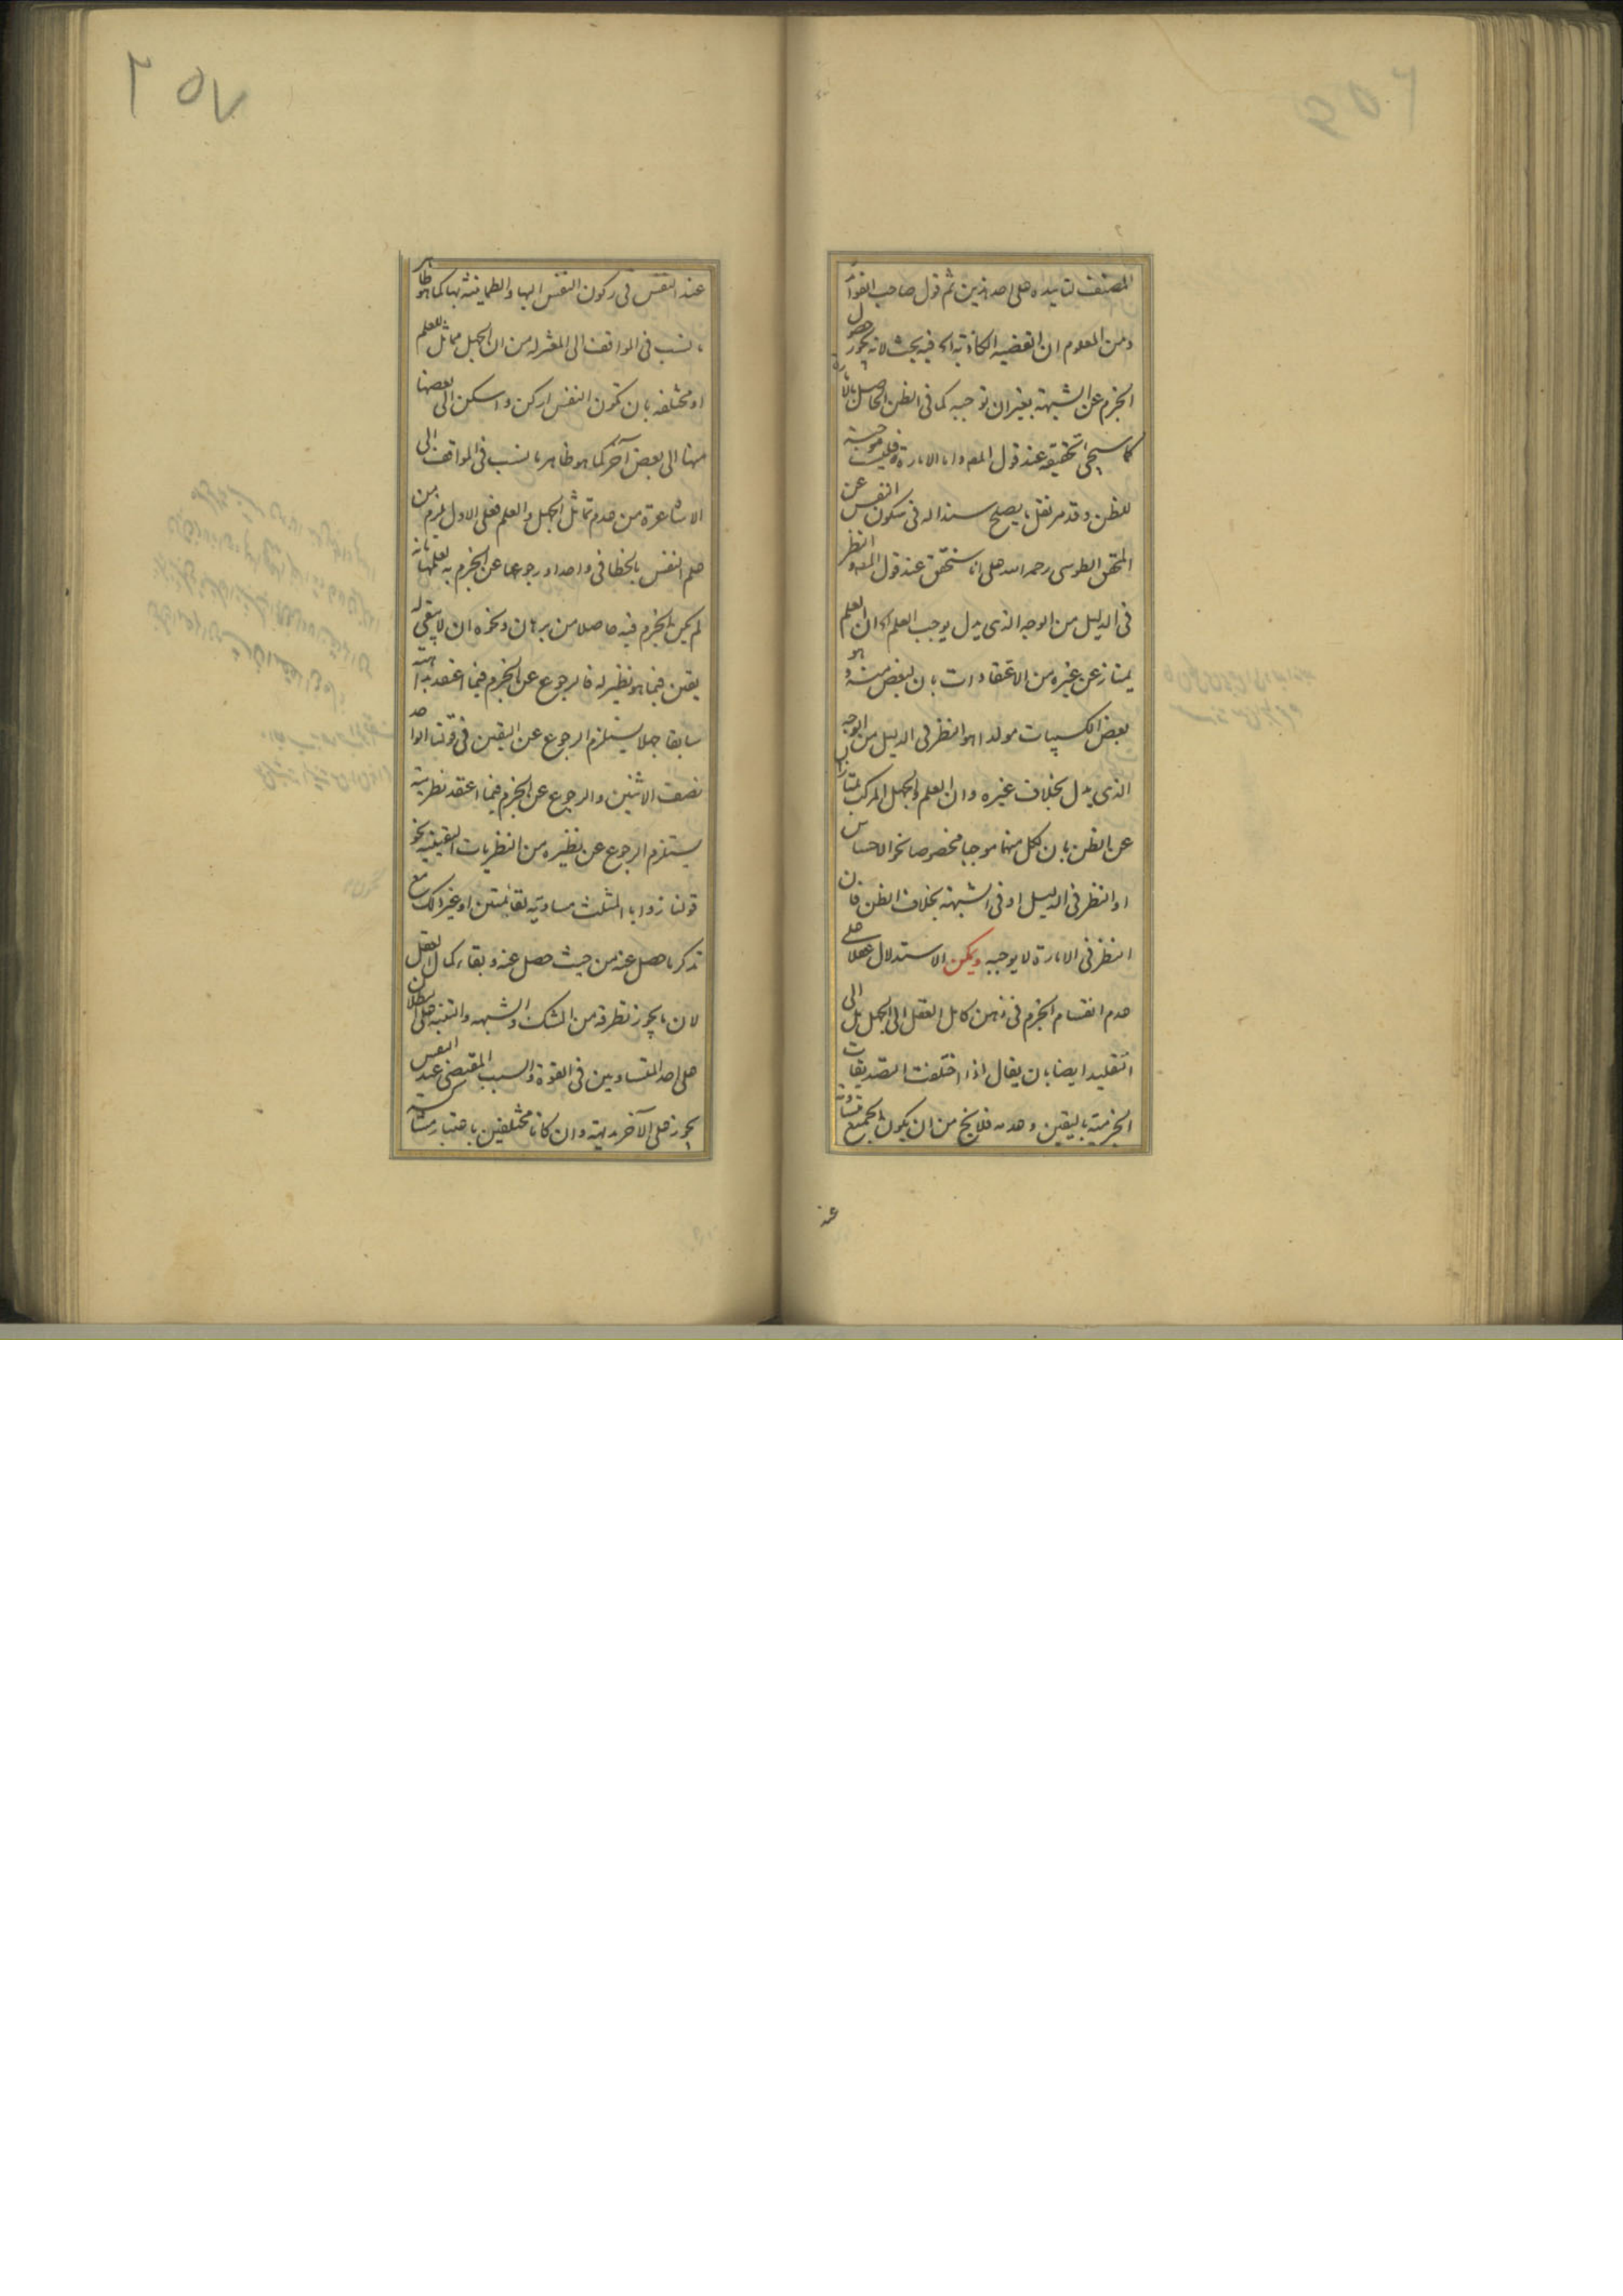 المصنف لتاييده على احد هذين ثم قول صاحب الفوائد
ومن المعلوم ان القضيه الكاذبة اه فيه بحث لانه يجوز حصول
الجزم عن الشبهة بغير ان توجبه كما فى الظن الحاصل بالامارة
كما سيجئ تحقيقه عند قول المص واما الامارة فليست موجبة
للظن وقد مر نقل ما يصلح سندا له فى سكون النفس عن
المحقق الطوسى رحمه الله على انا سنحقق عند قول المص والنظر
فى الدليل من الوجه الذى يدل يوجب العلم اه ان العلم
يمتاز عن غيره من الاعتقادات بان لبعض منه وهو
بعض الكسبيات مولدا هو النظر فى الدليل من الوجه
الذى يدل بخلاف غيره وان العلم والجهل المركب يمتازان
عن الظن بان لكل منهما موجبا مخصوصا نحو الاحساس
او النظر فى الدليل او فى الشبهة بخلاف الظن فان
النظر فى الامارة لا يوجبه ويمكن الاستدلال عقلا على
عدم انقسام الجزم فى ذهن كامل العقل الى الجهل بل الى
التقليد ايضا بان يقال اذا اختلفت التصديقات
الجزمية باليقين وعدمه فلا يخ من ان يكون الجميع متساوية
عند
٢٥٧
عند النفس فى ركون النفس اليها والطمانينة بها كما هو ظاهر
ما نسب فى المواقف الى المعتزله من ان الجهل مماثل للعلم
او مختلفه بان تكون النفس اركن واسكن الى بعضها
منها الى بعض آخر كما هو ظاهر ما نسب فى المواقف الى
الاشاعرة من عدم تماثل الجهل والعلم فعلى الاول لزم من
علم النفس بالخطا فى واحد ورجوعها عن الجزم به لعلمها بانه
لم يكن الجزم فيه حاصلا من برهان ونحوه ان لا يبقى له
يقين فيما هو نظير له فالرجوع عن الجزم فيما اعتقد بداهته
سابقا جهلا يستلزم الرجوع عن اليقين فى قولنا الواحد
نصف الاثنين والرجوع عن الجزم فيما اعتقد نظريته
يستلزم الرجوع عن نظيره من النظريات اليقينيه نحو
قولنا زوايا المثلث مساوية لقائمتين او غير ذلك مع
تذكر ما حصل عنه من حيث حصل عنه وبقاء كمال العقل
لان ما يجوز تطرقه من الشك والشبهه والتنبه على البطلان
على احد المتساويين فى القوة والسبب المقتضى عند النفس
يجوز على الآخر بديهة وان كانا مختلفين باعتبار